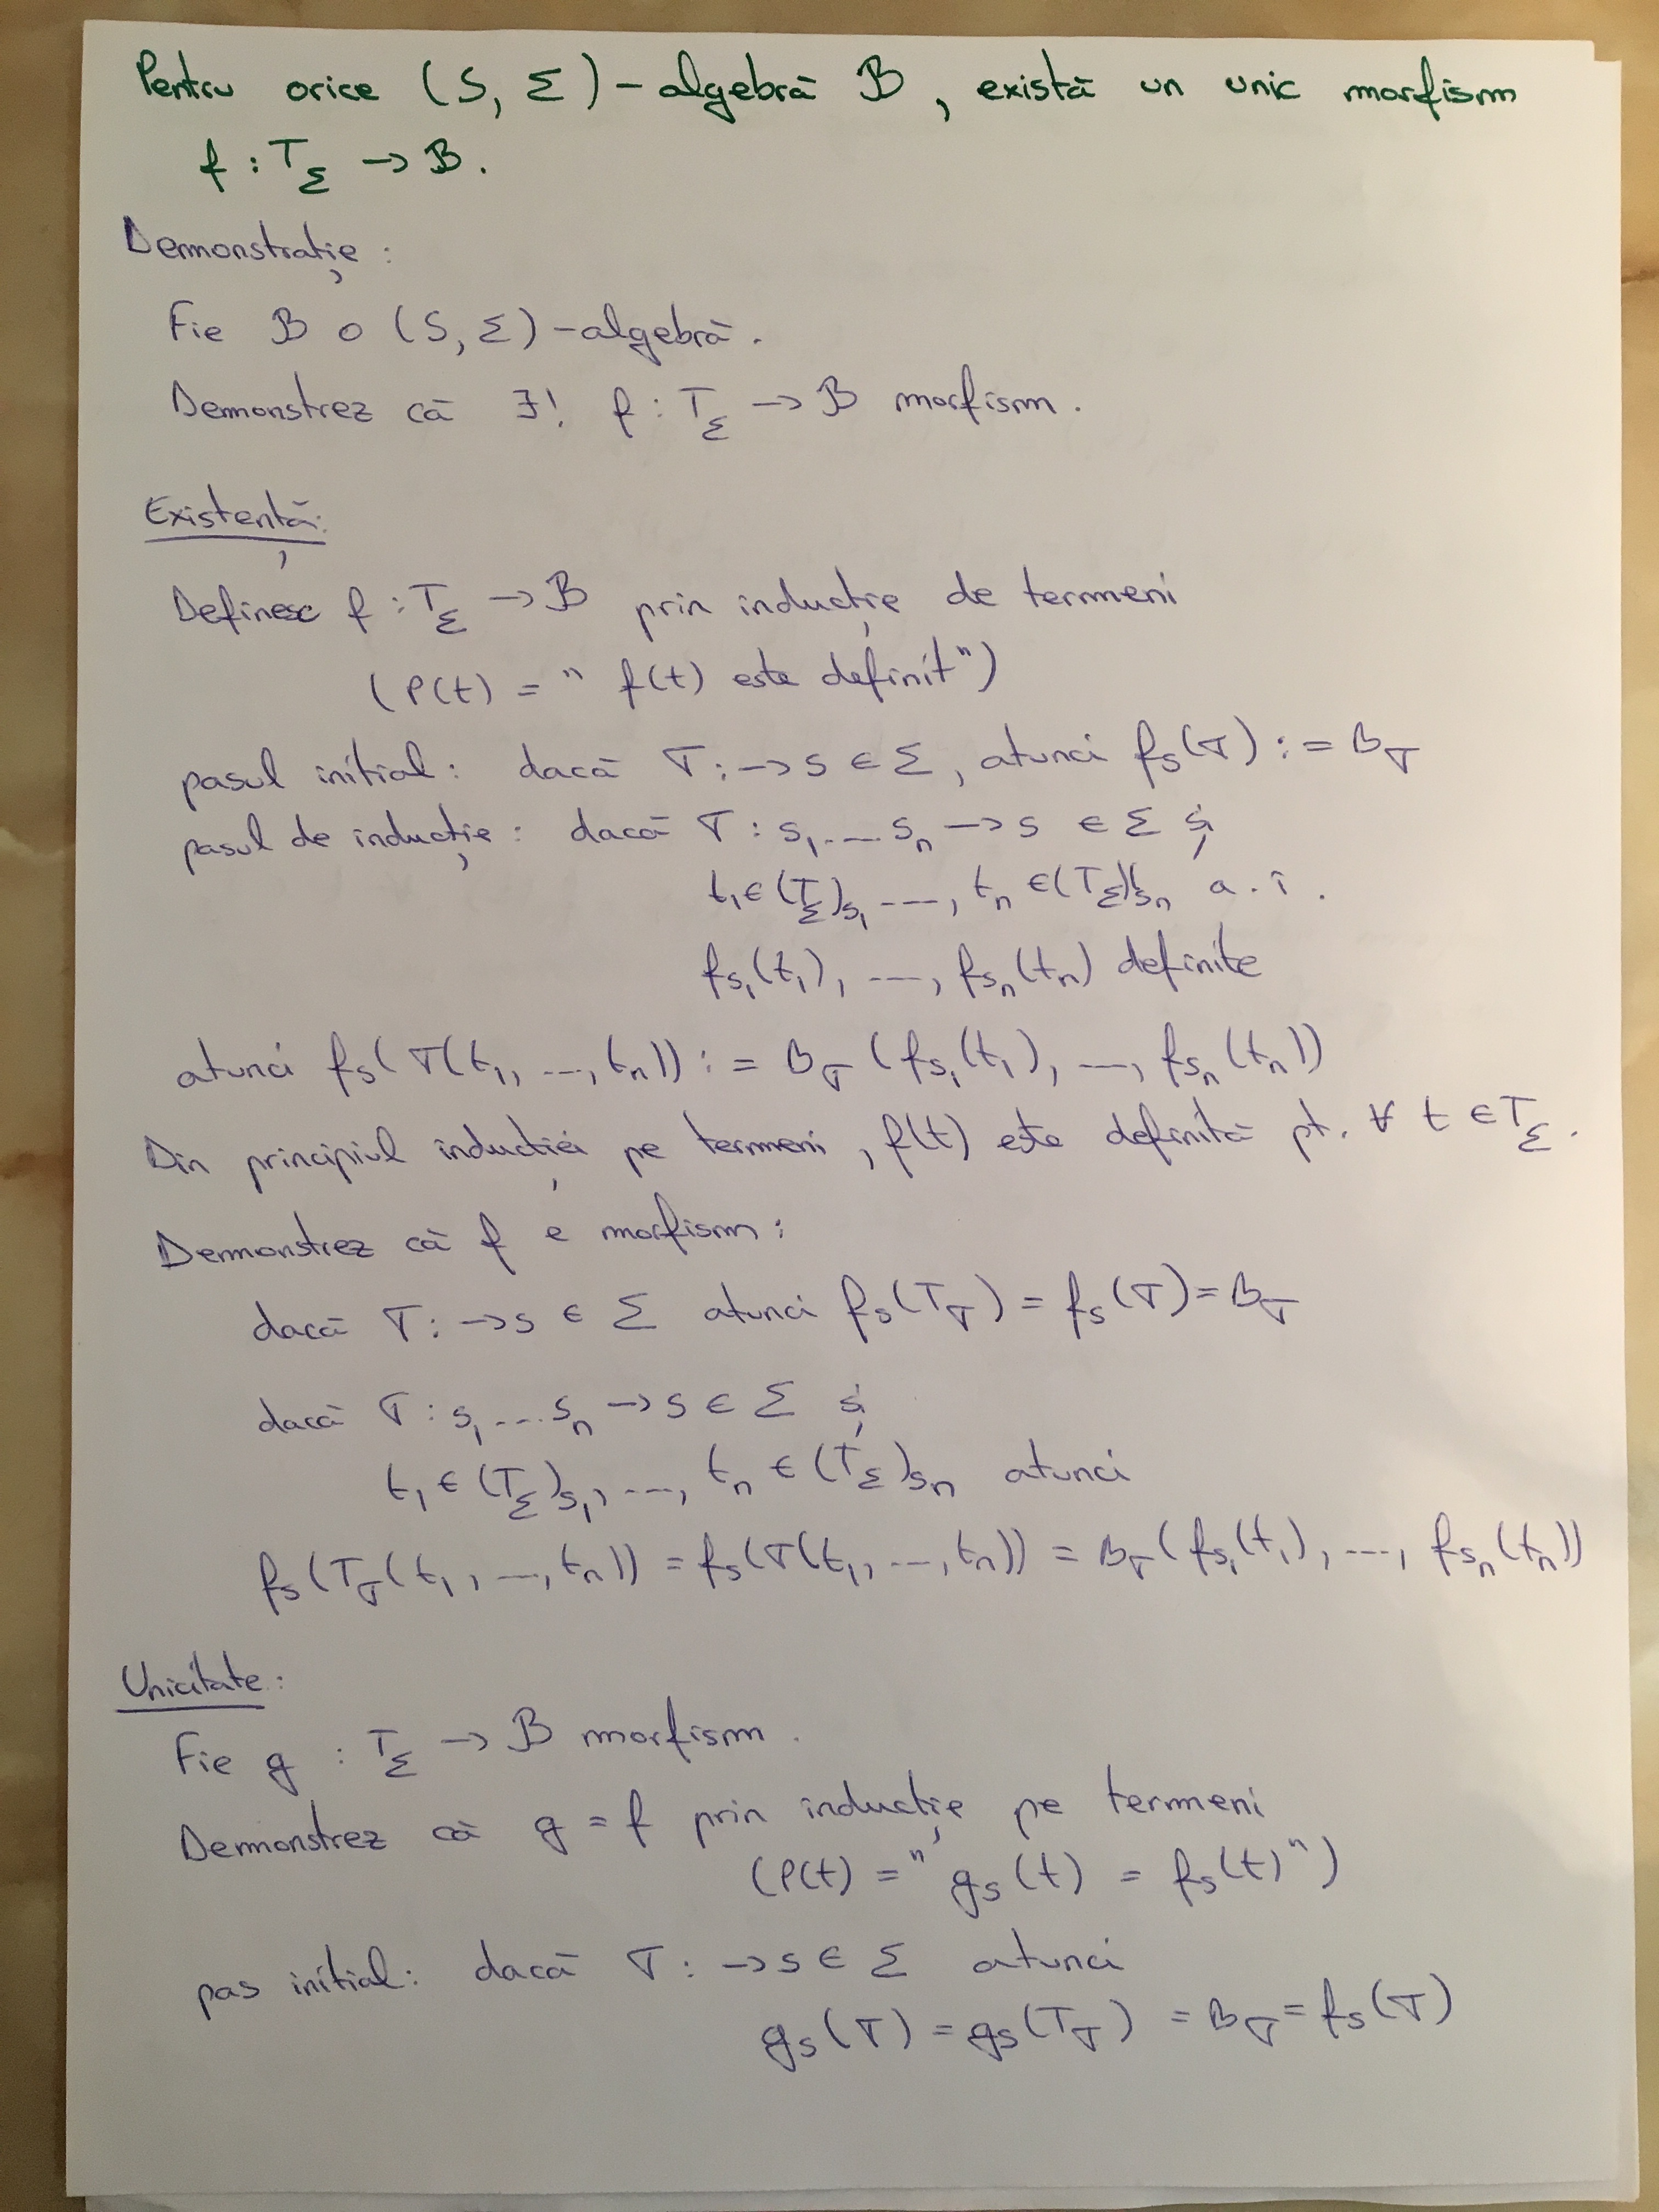 Pentru orice (S, Σ) - algebră B, există un unic morfism
f : T_Σ → B.
Demonstrație :
Fie B o (S, Σ) - algebră.
Demonstrez că ∃! f : T_Σ → B morfism.
Existență:
Definesc f : T_Σ → B prin inducție de termeni
(P(t) = " f(t) este definit")
pasul inițial : dacă σ : → s ∈ Σ, atunci f_s(σ) := B_σ
pasul de inducție : dacă σ : s₁ ... sₙ → s ∈ Σ și
t₁ ∈ (T_Σ)_s₁ ..., tₙ ∈ (T_Σ)_sₙ a. î.
f_s₁(t₁), ..., f_sₙ(tₙ) definite
atunci f_s(σ(t₁, ..., tₙ)) := B_σ (f_s₁(t₁), ..., f_sₙ(tₙ))
Din principiul inducției pe termeni, f(t) este definită pt. ∀ t ∈ T_Σ.
Demonstrez că f e morfism :
dacă σ : → s ∈ Σ atunci f_s(T_σ) = f_s(σ) = B_σ
dacă σ : s₁ ... sₙ → s ∈ Σ și
t₁ ∈ (T_Σ)_s₁, ..., tₙ ∈ (T_Σ)_sₙ atunci
f_s(T_σ(t₁, ..., tₙ)) = f_s(σ(t₁, ..., tₙ)) = B_σ(f_s₁(t₁), ..., f_sₙ(tₙ))
Unicitate :
Fie g : T_Σ → B morfism.
Demonstrez că g = f prin inducție pe termeni
(P(t) = " g_s(t) = f_s(t)")
pas inițial : dacă σ : → s ∈ Σ atunci
g_s(σ) = g_s(T_σ) = B_σ = f_s(σ)